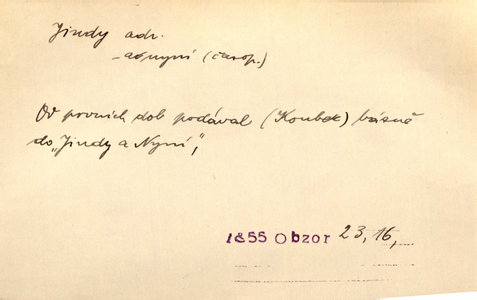 Jindy adv.
– a nyní (časop.)
Od prvních dob podával (Koubek) básně
do „Jindy a Nyní",
1855 Obzor 23, 16,